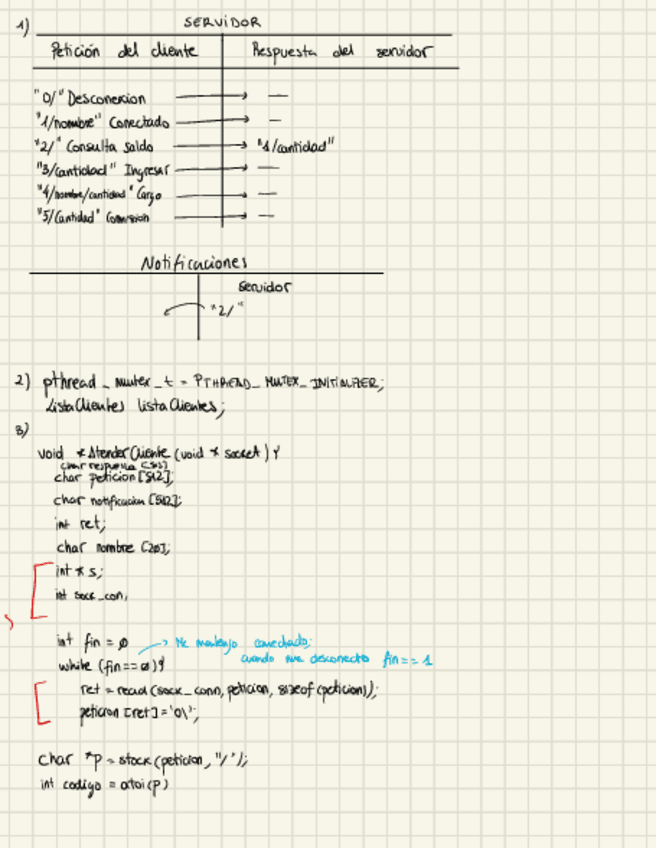 1) SERVIDOR
Petición del cliente Respuesta del servidor
"0/" Desconexion —
"1/nombre" Conectado —
"2/" Consulta saldo "1/cantidad"
"3/cantidad" Ingresar —
"4/nombre/cantidad" Cargo —
"5/Cantidad" Comision —
Notificaciones
servidor
"2/"
2) pthread_mutex_t = PTHREAD_MUTEX_INITIALIZER;
ListaClientes listaClientes;
3)
void *AtenderCliente (void * socket) {
char respuesta [512]
char peticion [512];
char notificacion [512];
int ret;
char nombre [20];
int * s;
int sock_con;
int fin = 0 → Me mantengo conectado;
cuando me desconecto fin == 1
while (fin == 0) {
ret = read (sock_conn, peticion, sizeof (peticion));
peticion [ret] = '0\';
char *p = stock (peticion, "/");
int codigo = atoi (p)